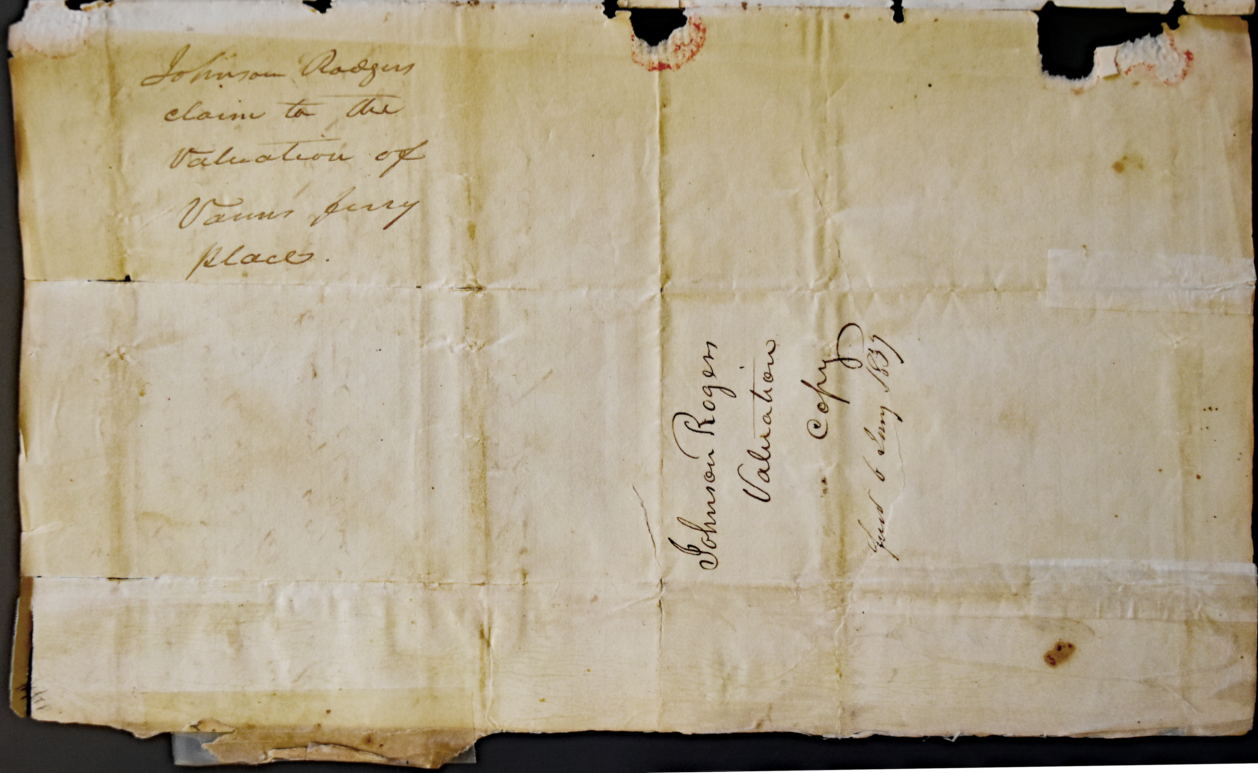 Johnson Rodgers
claim to the
Valuation of
Vanns ferry
place.
Johnson Rogers
Valuation
Copy
6 Jany 1837